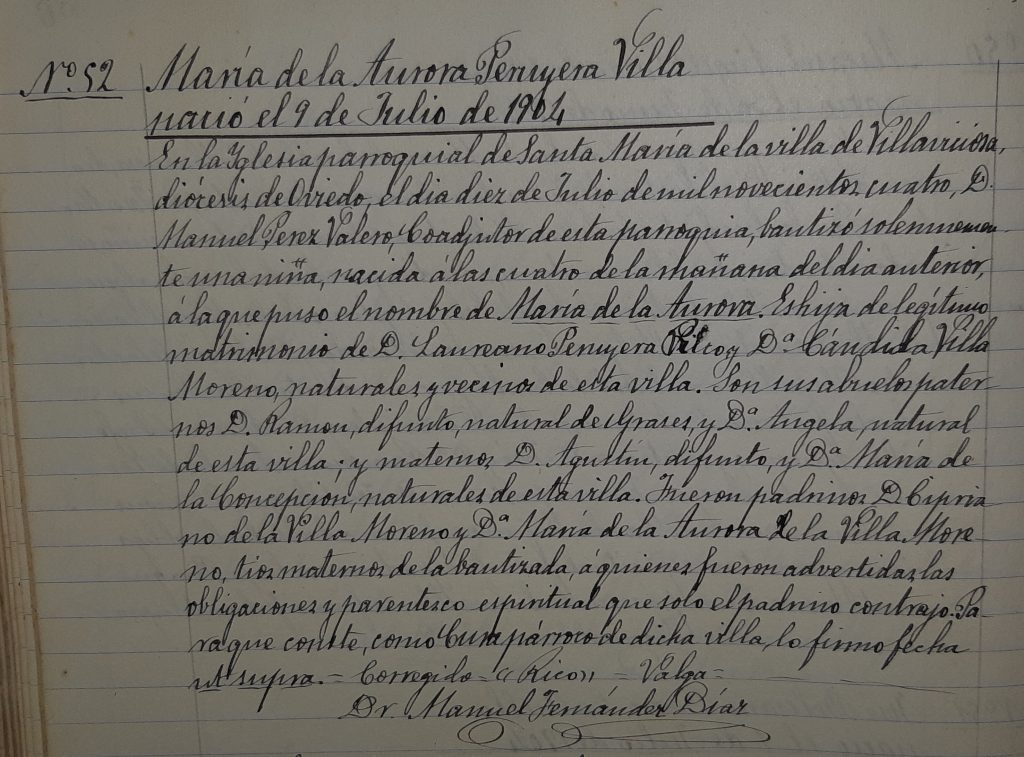 Nº 52
María de la Aurora Peruyera Villa
nació el 9 de Julio de 1904
En la Iglesia parroquial de Santa María de la villa de Villaviciosa,
diócesis de Oviedo, el dia diez de Julio de mil novecientos cuatro, D.
Manuel Perez Valero, Coadjutor de esta parroquia, bautizó solemnemen-
te una niña, nacida á las cuatro de la mañana del dia anterior,
á la que puso el nombre de María de la Aurora. Es hija de legítimo
matrimonio de D. Laureano Peruyera Rico y Dª Cándida Villa
Moreno, naturales y vecinos de esta villa. Son sus abuelos pater-
nos D. Ramon, difunto, natural de Grases, y Dª Angela, natural
de esta villa; y maternos D. Agustín, difunto, y Dª María de
la Concepción, naturales de esta villa. Fueron padrinos D. Cipria
no de la Villa Moreno y Dª María de la Aurora de la Villa More-
no, tios maternos de la bautizada, á quienes fueron advertidas las
obligaciones y parentesco espiritual que solo el padrino contrajo. Pa-
ra que conste, como Cura párroco de dicha villa, lo firmo fecha
ut supra. = Corregido = "Rico" = Valga =
Dr. Manuel Fernández Díaz